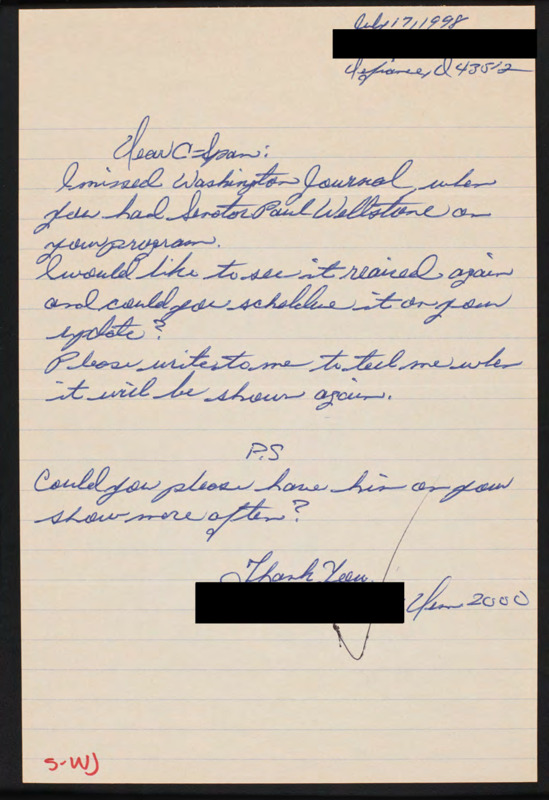 July 17, 1998
Defiance, O 43512
Dear C-Span:
I missed Washington Journal when
you had Senator Paul Wellstone on
your program.
I would like to see it reaired again
and could you scheldue it on your
update?
Please write to me to tell me when
it will be shown again.
P.S
Could you please have him on your
show more often?
Thank You
2000
S-WJ